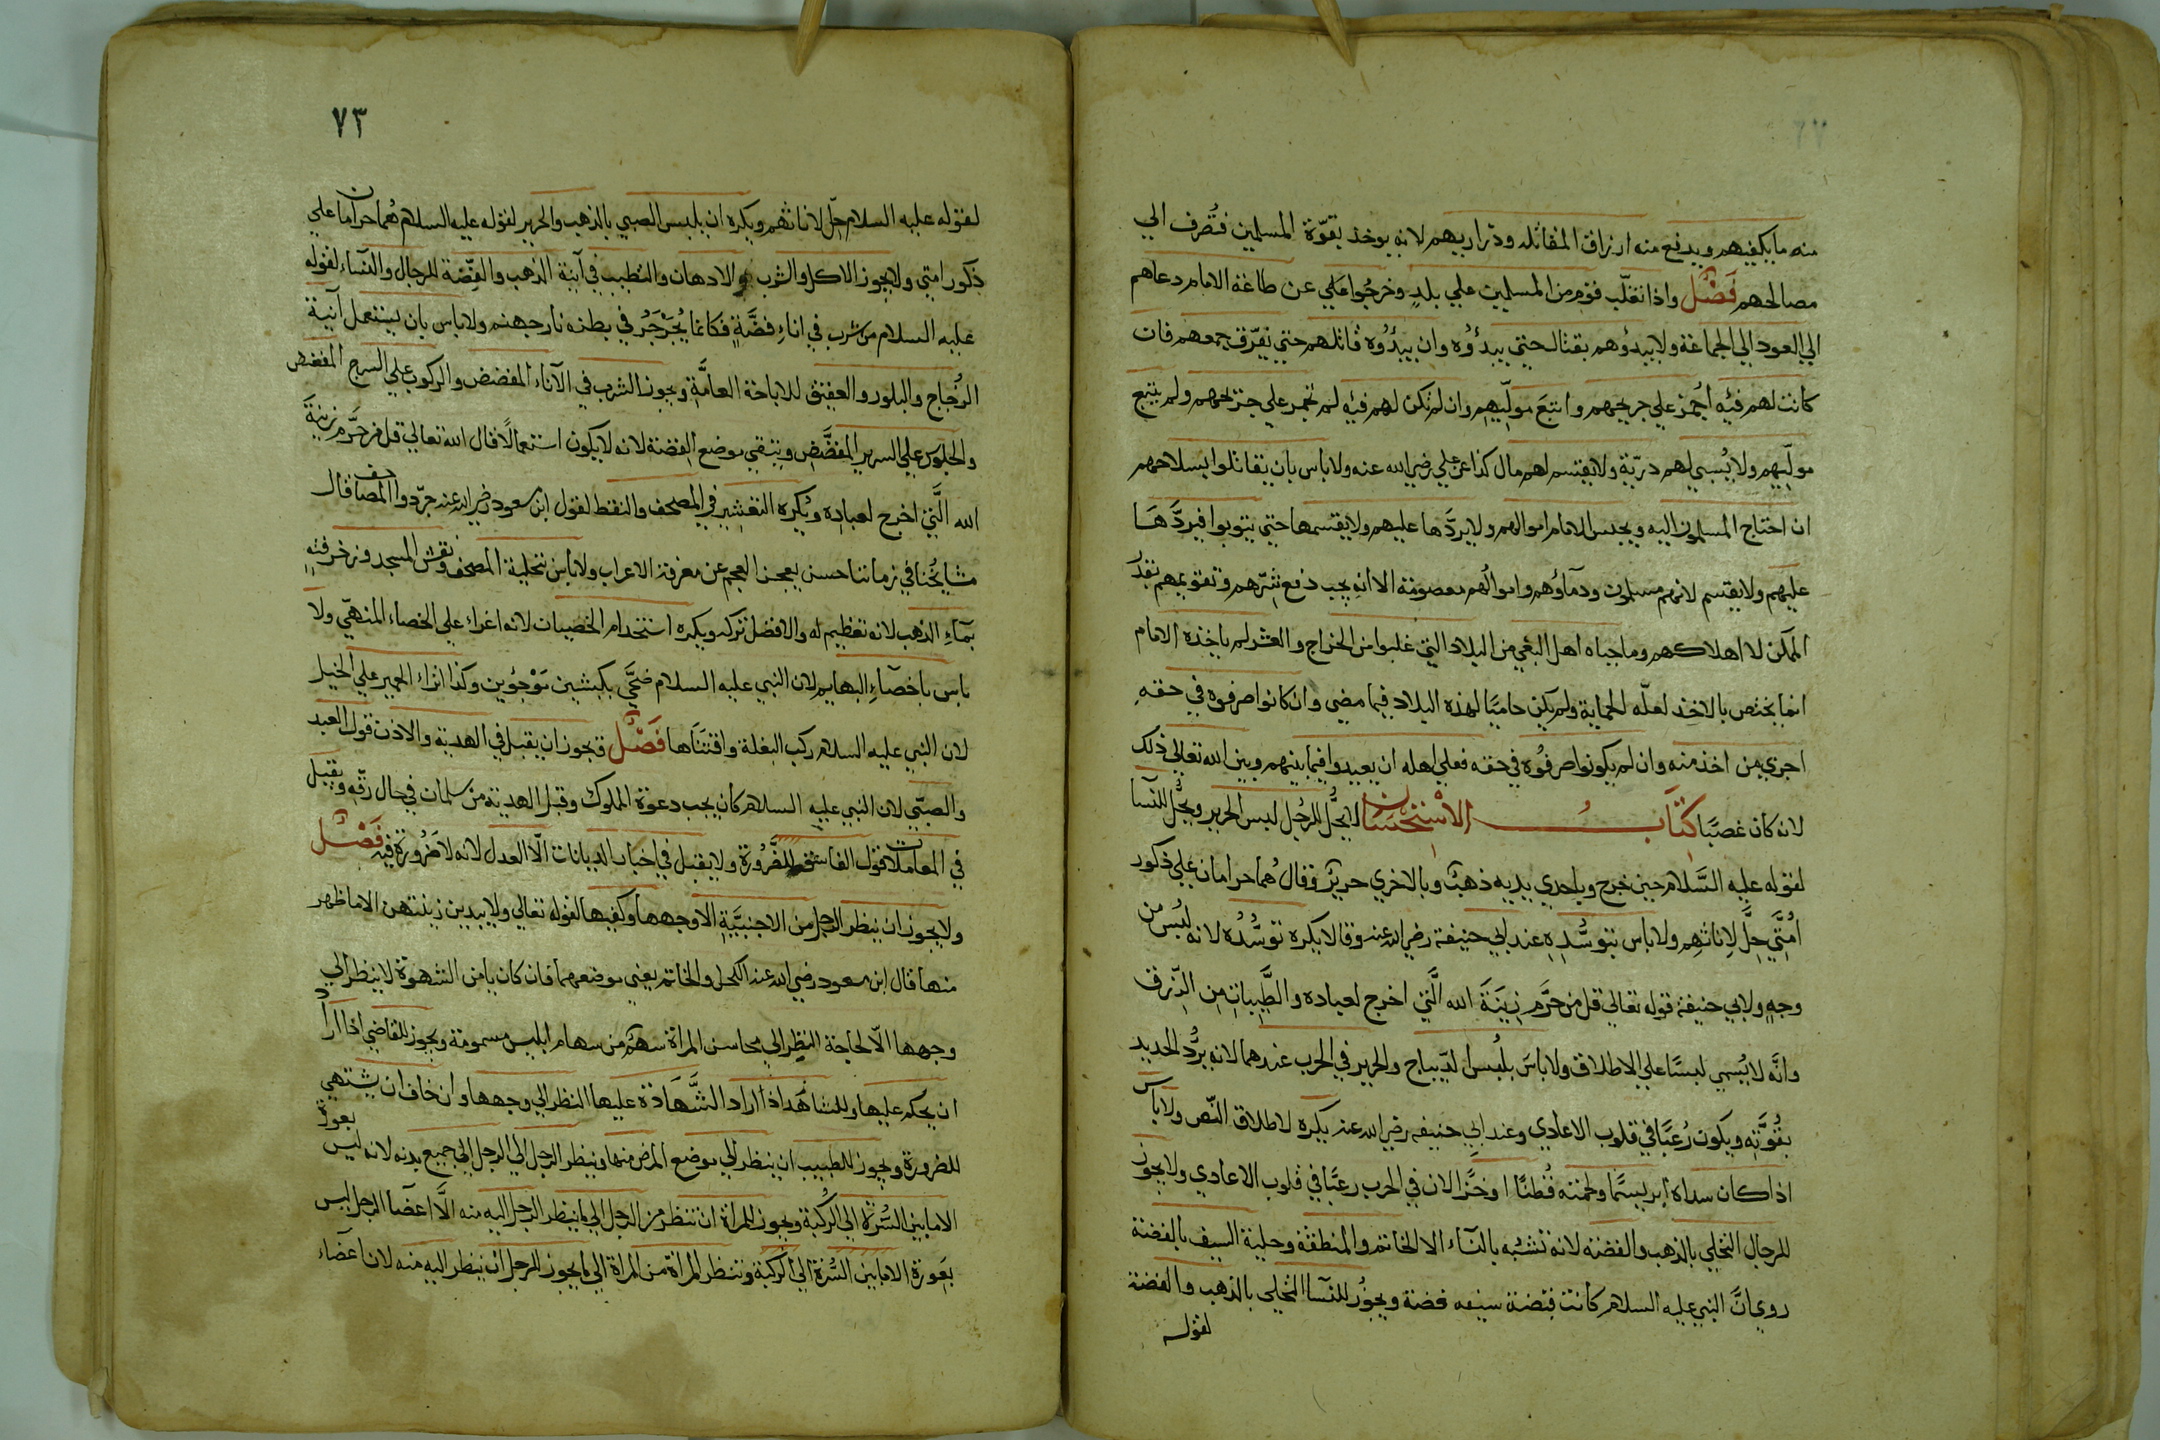 منه ما يكفيهم ويدفع منه ارزاق المقاتلة وذراريهم لانه يوخذ بقوّة المسلمين فتُصرف الي
مصالحهم فَصْل واذا تغلّب قوم من المسلمين علي بلدٍ وخرجُوا علي عن طاعة الامام دعاهم
الي العود الي الجماعة ولا يبدؤهم بقتال حتي يبدؤه وان بدؤه قاتلهم حتي تفرّق جمعهم فان
كانت لهم فئة اُجهز علي جريحهم واتبعَ مولّيهم وان لم تكن لهم فئة لم يجهز علي جريحهم ولم يتبع
مولّيهم ولا يُسبي لهم ذريّة ولا يقتسم لهم مال كذا عن علي رضي الله عنه ولا باس بان يقاتلوا بسلاحهم
ان احتاج المسلمون اليه ويحبس الامام اموالهم ولا يردّها عليهم ولا يقتسمها حتي يتوبوا فيردَّهَا
عليهم ولا يقتسم لانهم مسلمون ودماؤهم واموالهم معصومة الا انه يجب دفع شرّهم وتقويمهم بقدر
الممكن لا اهلاكهم وما جباه اهل البغي من البلاد التي غلبوا من الخراج والعشر لم ياخذه الامام
انما يختص بالاخذ لعلّة الحماية ولم يكن حاميًا لهذه البلاد فيما مضي وان كانوا صرفوه في حقه
اجزي من اخذ منه وان لم يكونوا صرفُوه في حقه فعلي اهله ان يعيدوا فيما بينهم وبين الله تعالي ذلك
لانه كان غصبًا كتَابُ الاسْتحسَان لا يحُّل للرجُل لبس الحرير ويحُّل للنسآ
لقوله عليه السَّلام حين خرج وباحدي يديه ذهبٌ وبالاخري حريرٌ وقال هُما حرامان علي ذكور
اُمَّتي حِلّ لِاِناثهم ولا باس بتوسُّدِهِ عند ابي حنيفة رضي الله عنه وقالا يكره توسُّدُه لانه لبُس من
وجهٍ ولابي حنيفة قوله تعالي قل من حرَّم زينَةَ الله الَّتي اخرج لعباده والطَّيباتِ مِن الرِّزق
وانَّه لا يُسمي لبسًا علي الاطلاق ولا باسَ بلُبس الدّيباج والحرير في الحرب عندهما لانه يرُّد الحديد
بقُوّته ويكون رُعبًا في قلوب الاعادي وعند ابي حنيفة رضي الله عنه يكره لاطلاق النّص ولا باس
اذا كان سداه ابريسمًا ولحمته قُطنًا او خزًّا لان في الحرب رعبًا في قلوب الاعادي ولا يجوز
للرجال التحلي بالذهب والفضة لانه تشبُّه بالنسآء الا الخاتم والمنطقة وحلية السيف بالفضة
روي انَّ النبي عليه السلام كانت قبضة سيفه فضة ويجوُز للنسآ التحلي بالذهب والفضة
لقوله
٧٣
لقوله عليه السلام حِلّ لاناثهم ويكره ان يلبس الصبي بالذهب والحرير لقوله عليه السلام هُما حرامان علي
ذكور امتي ولا يجوز الاكل والشرب والادهان والتطيب في آنية الذهب والفِضّة للرجال والنساء لقوله
عليه السلام من شرب في اناءِ فضَّةٍ فكانما يُجرْجرُ في بطنه نار جهنم ولا باس بان يستعمل آنية
الزُجاج والبلور والعقيق للاباحة العامَّةِ ويجوز الشرب في الآناء المفضض والركوب علي السرج المفضض
والجلوس علي السرير المفضَّضِ ويتقي موضع الفضة لانه لا يكون استعمالًا قال الله تعالي قل من حرَّم زينةَ
الله الَّتي اخرج لعباده ويُكره التعشير في المصحف والنقط لقول ابن مسعود رضي الله عنه جرّدوا المصاحف قال
مشايخُنا في زماننا حسن لعجز العجم عن معرفة الاعراب ولا باس بتحلية المصحف ونقش المسجد وزخرفته
بمآء الذهب لانه تعظيم له والافضل تركه ويكره استخدام الخصيان لانه اغراء علي الخصاء المنهي ولا
باس باخصآءِ البهايم لان النبي عليه السلام ضحَّي بكبشين مَوْجُوئين وكذا انزاء الحمير علي الخيل
لان النبي عليه السلام ركب البغلة واقتنَاها فَصْل ويجوز ان يقبل في الهدية والاذن قول العبد
والصبّي لان النبي عليه السلام كان يجيب دعوة المملوك وقبل الهدية من سلمان في حال رقّه ويقبل
في المعاملات قول الفاسق للضَّرُورة ولا يقبل في اخبار الديانات الّا العدل لانه لا ضَرُورة فيه فَصْل
ولا يجوز ان ينظر الرجل من الاجنبيَّةِ الا وجهها وكفيها لقوله تعالي ولا يبدين زينتهن الا ما ظهر
منها قال ابن مسعود رضي الله عنه الكحل والخاتم يعني موضعهما فان كان يامن الشهوة لا ينظر الي
وجهها الّا لحاجة النظر الي محاسن المراة سهمٌ من سهام ابليس مسمومة ويجوز للقاضي اذا اراد
ان يحكم عليها وللشاهد اذا اراد الشَّهَادة عليها النظر الي وجهها وان خاف ان يشتهي
للضرورة ويجوز للطبيب ان ينظر الي موضع المرض منها وينظر الرجل الي الرجل الي جميع بدنه لانه ليس بعورة
الا ما بين السُّرّة الي الرُكبة ويجوز للمراة ان تنظر من الرجل الي ما ينظر الرجل اليه منه الَّا اعضآ الرجل ليس
بعَورة الا ما بين السُّرة الي الرُكبة وتنظر المراة من المراة الي ما يجوز للرجل ان ينظر اليه منه لان اعضاء